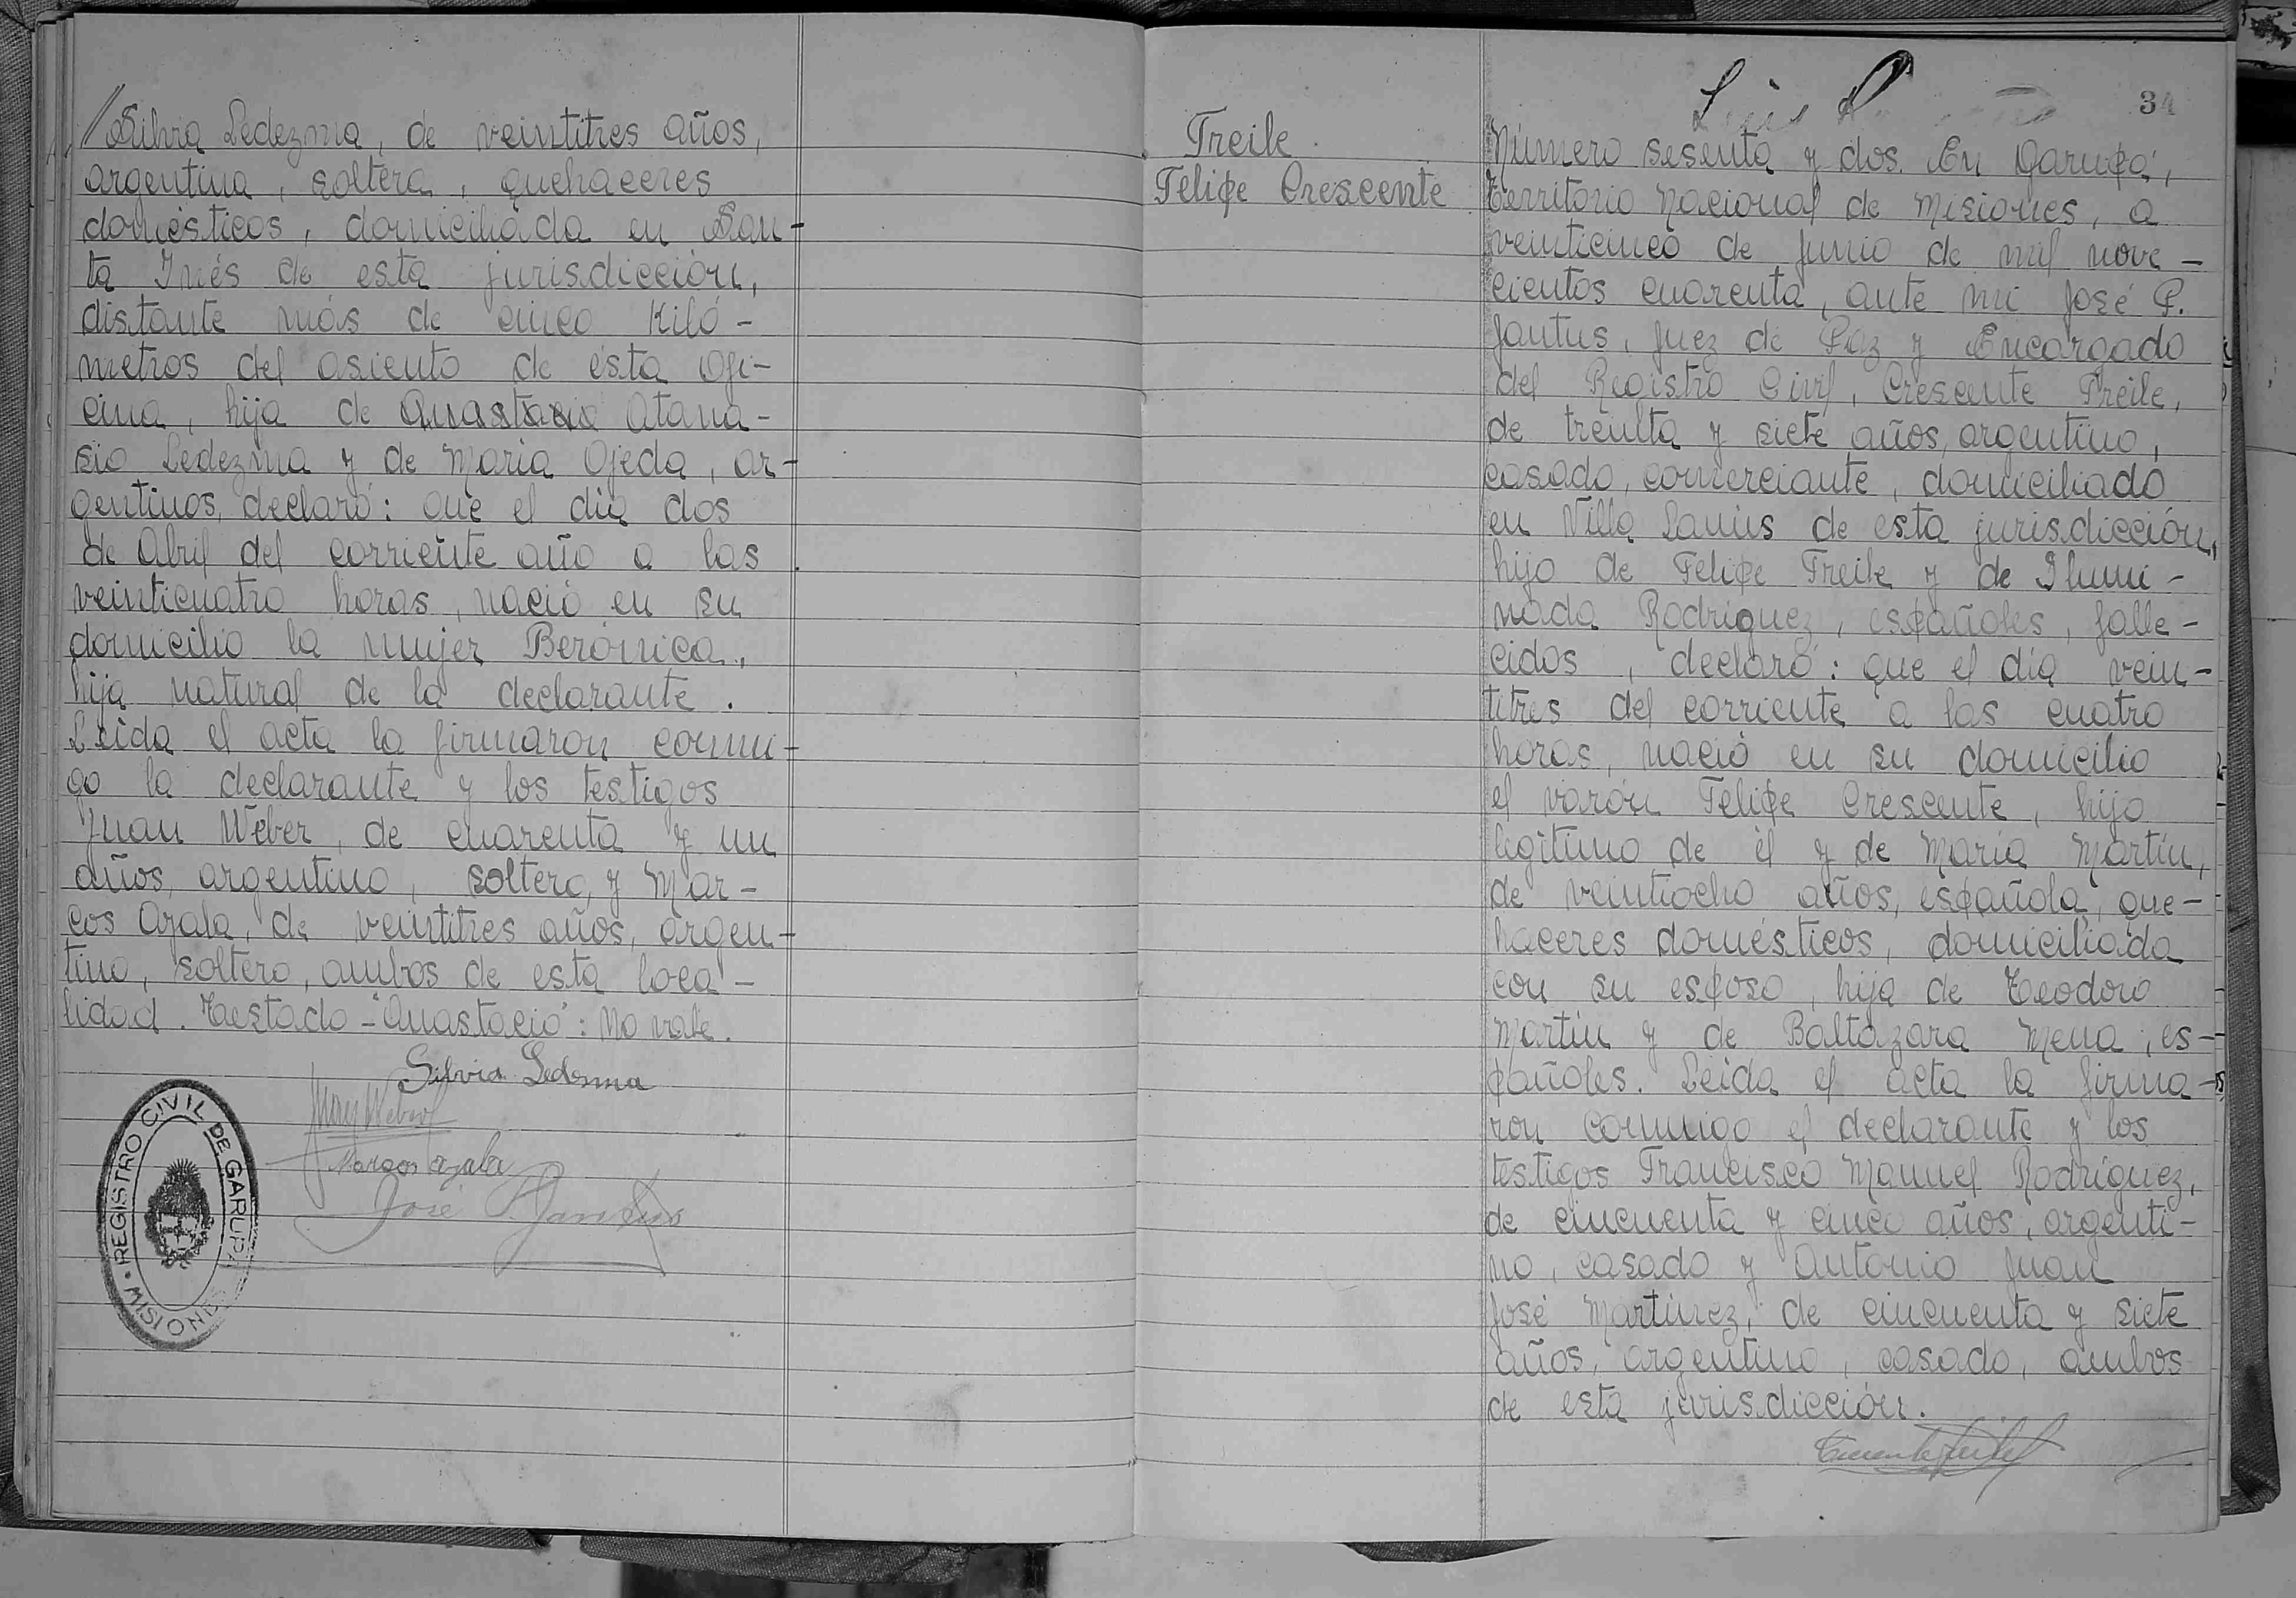 Silvia Ledezma, de veintitres años,
argentina, soltera, quehaceres
domésticos, domiciliada en San-
ta Inés de esta jurisdicción,
distante más de cinco Kiló-
metros del asiento de ésta Ofi-
cina, hija de Anastacio Atana-
sio Ledezma y de María Ojeda, ar-
gentinos, declaró: que el día dos
de Abril del corriente año a las
veinticuatro horas, nació en su
domicilio la mujer Berónica,
hija natural de la declarante.
Leida el acta la firmaron conmi-
go la declarante y los testigos
Juan Weber, de cuarenta y un
años, argentino, soltero, y Mar-
cos Ayala, de veintitres años, argen-
tino, soltero, ambos de esta loca-
lidad. Testado-"Anastacio": No vale.
Silvia Ledesma
Juan Weber
Marcos ayala
José P. Jantus
REGISTRO CIVIL DE GARUPA
MISIONES
Freile
Felipe Crescente
Luis
34
Número sesenta y dos. En Garupá,
Territorio Nacional de Misiones, a
veinticinco de Junio de mil nove-
cientos cuarenta, ante mi José P.
Jantus, Juez de Paz y Encargado
del Registro Civil, Crescente Freile,
de treinta y siete años, argentino,
casado, comerciante, domiciliado
en Villa Lanús de esta jurisdicción,
hijo de Felipe Freile y de Ilumi-
nada Rodriguez, españoles, falle-
cidos, declaró: que el día vein-
titres del corriente a las cuatro
horas, nació en su domicilio
el varón Felipe Crescente, hijo
legítimo de él y de María Martín,
de veintiocho años, española, que-
haceres domésticos, domiciliada
con su esposo, hija de Teodoro
Martín y de Baltazara Mena, es-
pañoles. Leida el acta la firma-
ron conmigo el declarante y los
testigos Francisco Manuel Rodríguez,
de cincuenta y cinco años, argenti-
no, casado y Antonio Juan
José Martínez, de cincuenta y siete
años, argentino, casado, ambos
de esta jurisdicción.